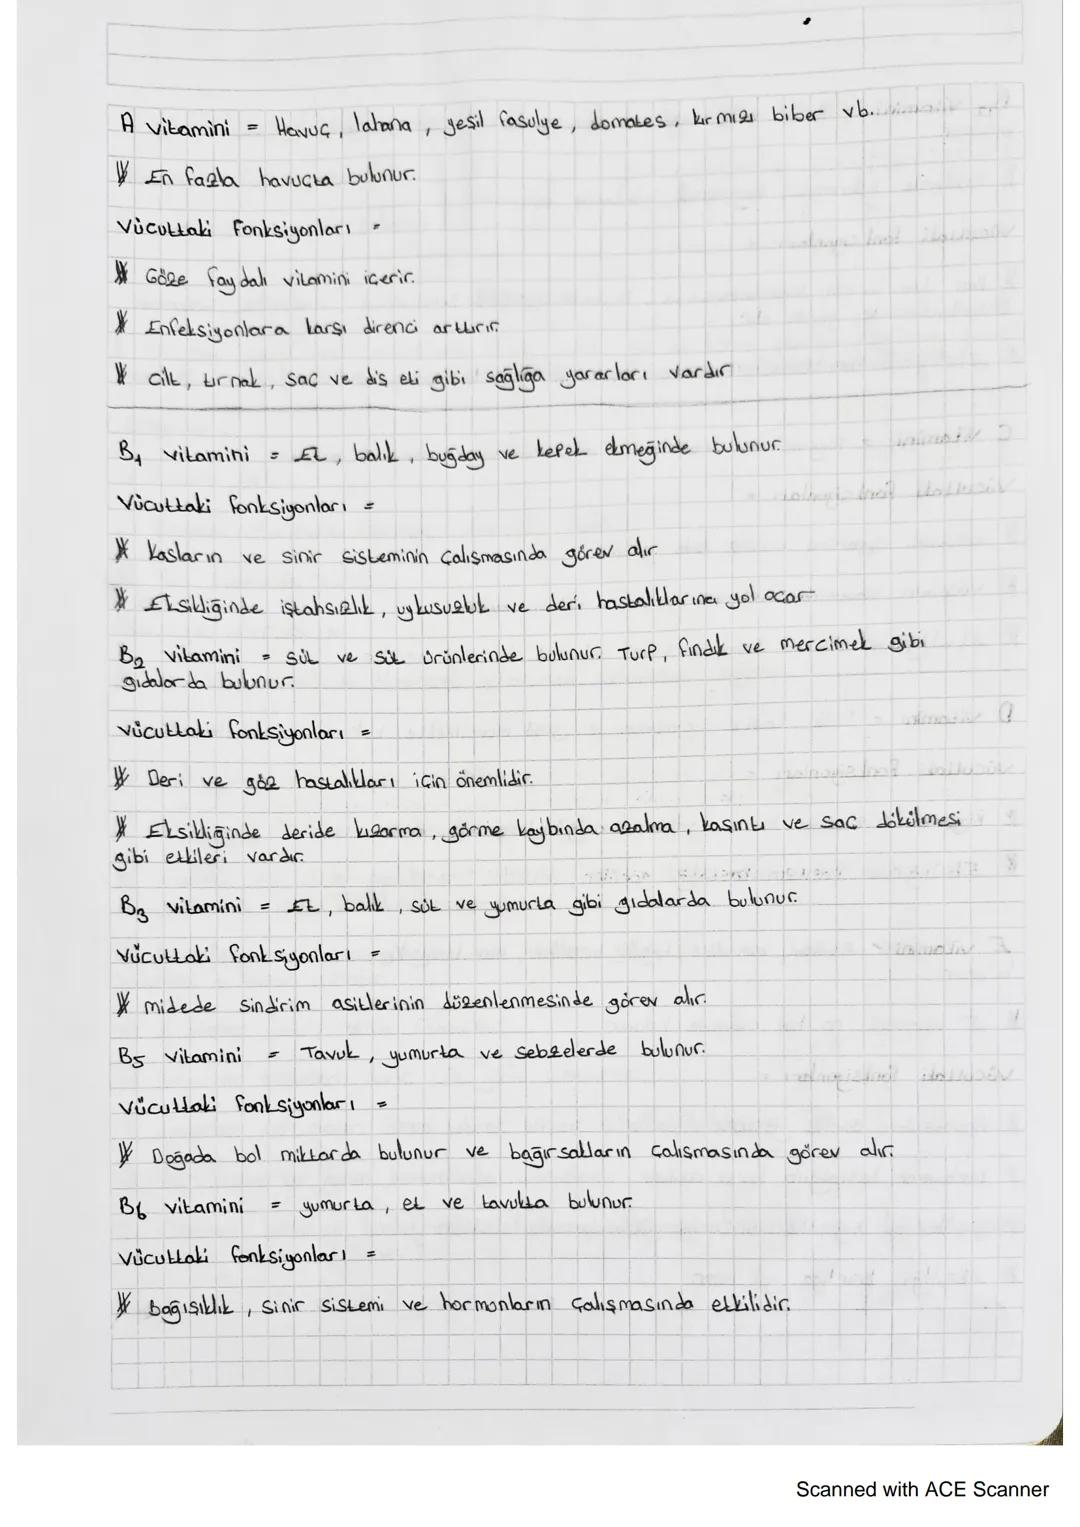 A vitamini = Havuç, lahana, yeşil fasulye, domates, kırmızı biber vb.
* En fazla havuçta bulunur.
Vücuttaki fonksiyonları =
* Göze faydalı vitamini içerir.
* Enfeksiyonlara karşı direnci arttırır.
* Cilt, tırnak, saç ve diş eti gibi sağlığa yararları vardır
B1 vitamini = Et, balık, buğday ve kepek ekmeğinde bulunur.
Vücuttaki fonksiyonları =
* Kasların ve sinir sisteminin çalışmasında görev alır
* Eksikliğinde iştahsızlık, uykusuzluk ve deri hastalıklarına yol açar
B2 vitamini = Süt ve süt ürünlerinde bulunur. Turp, fındık ve mercimek gibi
gıdalarda bulunur.
Vücuttaki fonksiyonları =
* Deri ve göz hastalıkları için önemlidir.
* Eksikliğinde deride kızarma, görme kaybında azalma, kaşıntı ve saç dökülmesi
gibi etkileri vardır.
B3 vitamini = Et, balık, süt ve yumurta gibi gıdalarda bulunur.
Vücuttaki fonksiyonları =
* midede sindirim asitlerinin düzenlenmesinde görev alır.
B5 vitamini = Tavuk, yumurta ve sebzelerde bulunur.
Vücuttaki fonksiyonları =
* Doğada bol miktarda bulunur ve bağırsakların çalışmasında görev alır.
B6 vitamini = yumurta, et ve tavukta bulunur.
Vücuttaki fonksiyonları =
* bağışıklık, sinir sistemi ve hormonların çalışmasında etkilidir.
Scanned with ACE Scanner